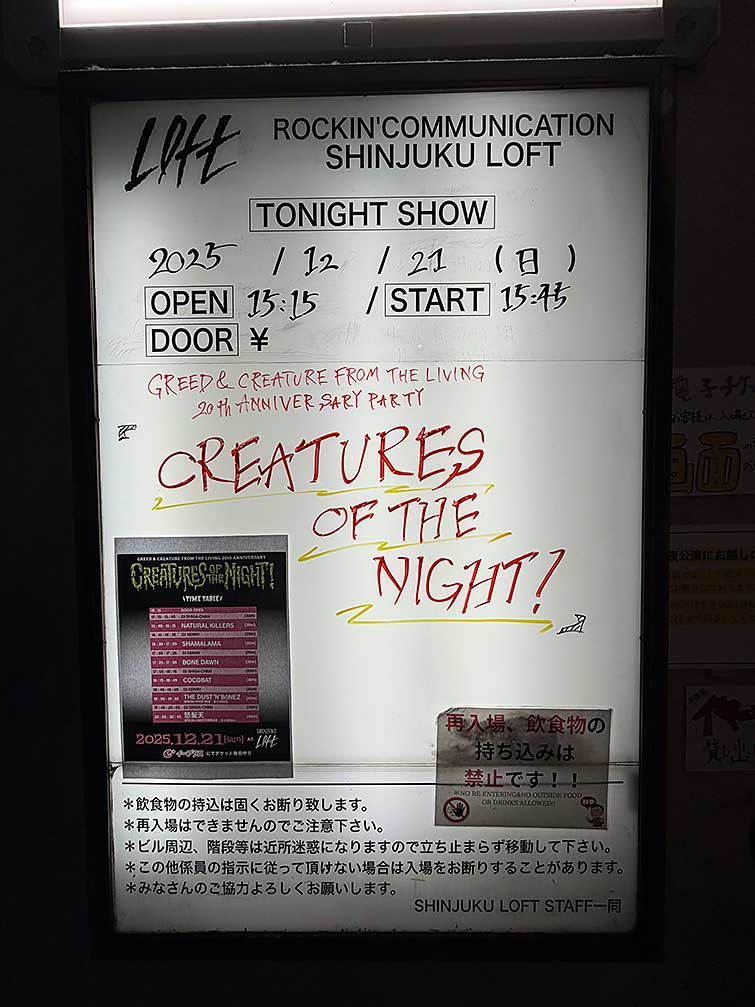 Loft
ROCKIN'COMMUNICATION
SHINJUKU LOFT
TONIGHT SHOW
2025 / 12 / 21 (日)
OPEN 15:15 / START 15:45
DOOR ¥
GREED & CREATURE FROM THE LIVING
20th ANNIVERSARY PARTY
CREATURES
OF THE
NIGHT!
GREED & CREATURE FROM THE LIVING 20TH ANNIVERSARY
CREATURES OF THE NIGHT!
TIME TABLE
DOOR OPEN
DJ SHIGA-CHAN
NATURAL KILLERS
DJ KENNY
SHAMALAMA
DJ KENNY
BONE DAWN
DJ SHIGA-CHAN
COCOBAT
DJ KENNY
THE DUST'N'BONEZ
DJ SHIGA-CHAN
怒髪天
2025.12.21[SUN] AT SHINJUKU LOFT
e+イープラス にてチケット発売中!!
再入場、飲食物の
持ち込みは
禁止です！！
※NO RE-ENTERING&NO OUTSIDE FOOD
OR DRINKS ALLOWED!!
NO
＊飲食物の持込は固くお断り致します。
＊再入場はできませんのでご注意下さい。
＊ビル周辺、階段等は近所迷惑になりますので立ち止まらず移動して下さい。
＊この他係員の指示に従って頂けない場合は入場をお断りすることがあります。
＊みなさんのご協力よろしくお願いします。
SHINJUKU LOFT STAFF一同
電子チケ
お客様は、入場
画面
公演にお越しの
貸し出